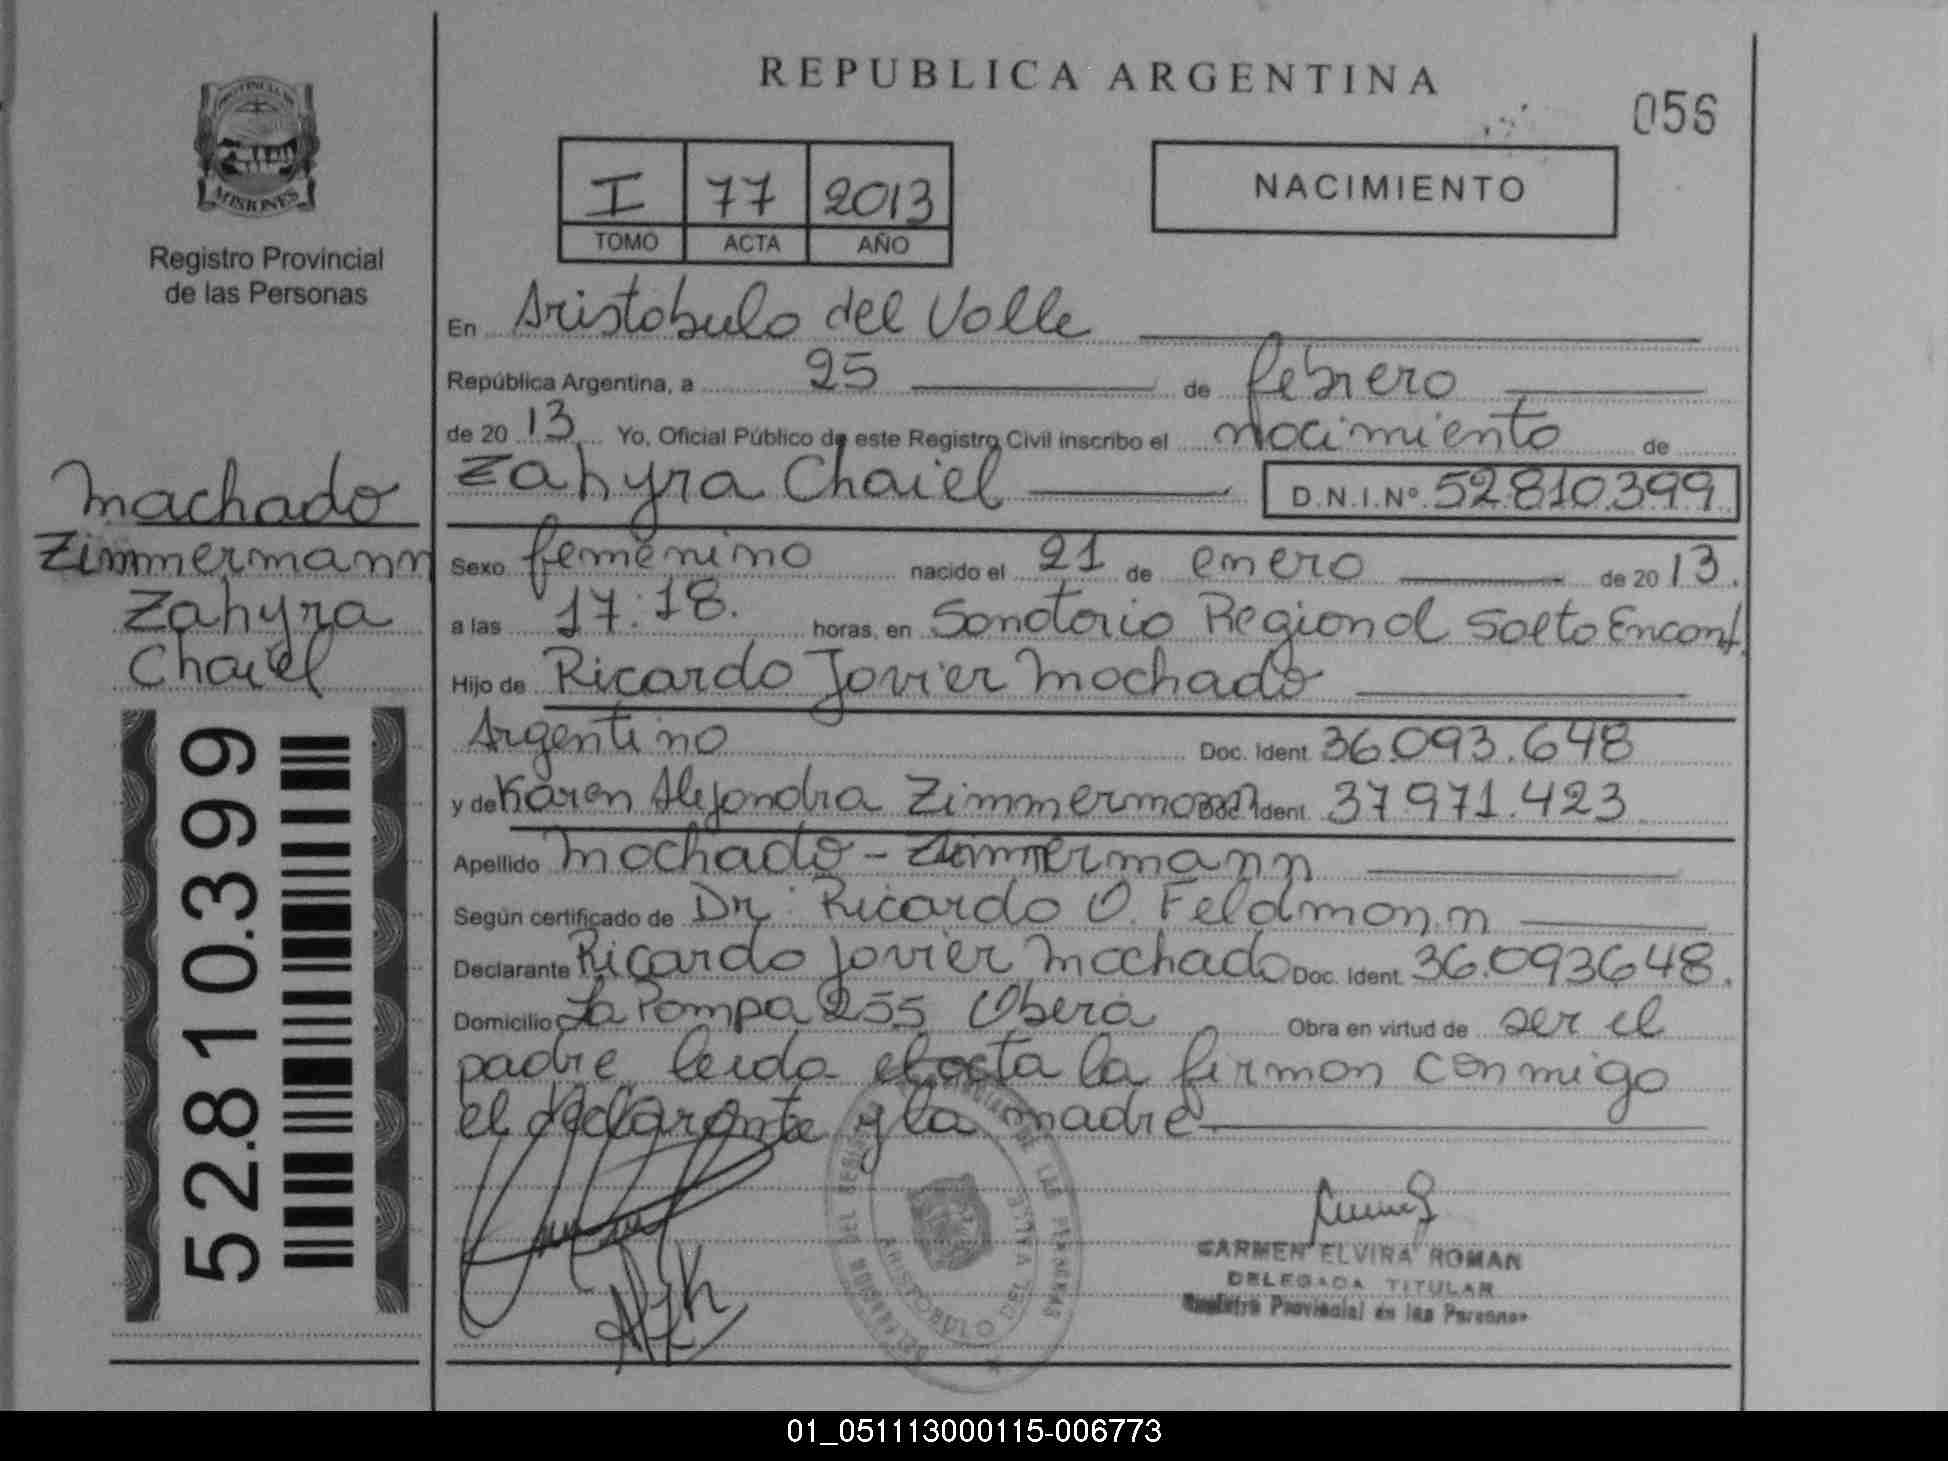 REPUBLICA ARGENTINA
056
PROVINCIA DE
MISIONES
Registro Provincial
de las Personas
I 77 2013
TOMO ACTA AÑO
NACIMIENTO
En Aristobulo del Valle
República Argentina, a 25 de febrero
de 2013 Yo, Oficial Público de este Registro Civil inscribo el nacimiento de
Zahyra Chaiel D.N.I.Nº 52.810.399
Machado
Zimmermann
Zahyra
Chaiel
52.810.399
Sexo femenino nacido el 21 de enero de 2013.
a las 17:18. horas, en Sanatorio Regional Salto Encant.
Hijo de Ricardo Javier Machado
Argentino Doc. Ident. 36.093.648
y de Karen Alejandra Zimmermann Doc. Ident. 37.971.423
Apellido Machado - Zimmermann
Según certificado de Dr. Ricardo O. Feldmann
Declarante Ricardo Javier Machado Doc. Ident. 36.093648.
Domicilio La Pampa 255 Oberá Obra en virtud de ser el
padre leida el acta la firman conmigo
el declarante y la madre
CARMEN ELVIRA ROMAN
DELEGADA TITULAR
Registro Provincial de las Personas
01_051113000115-006773